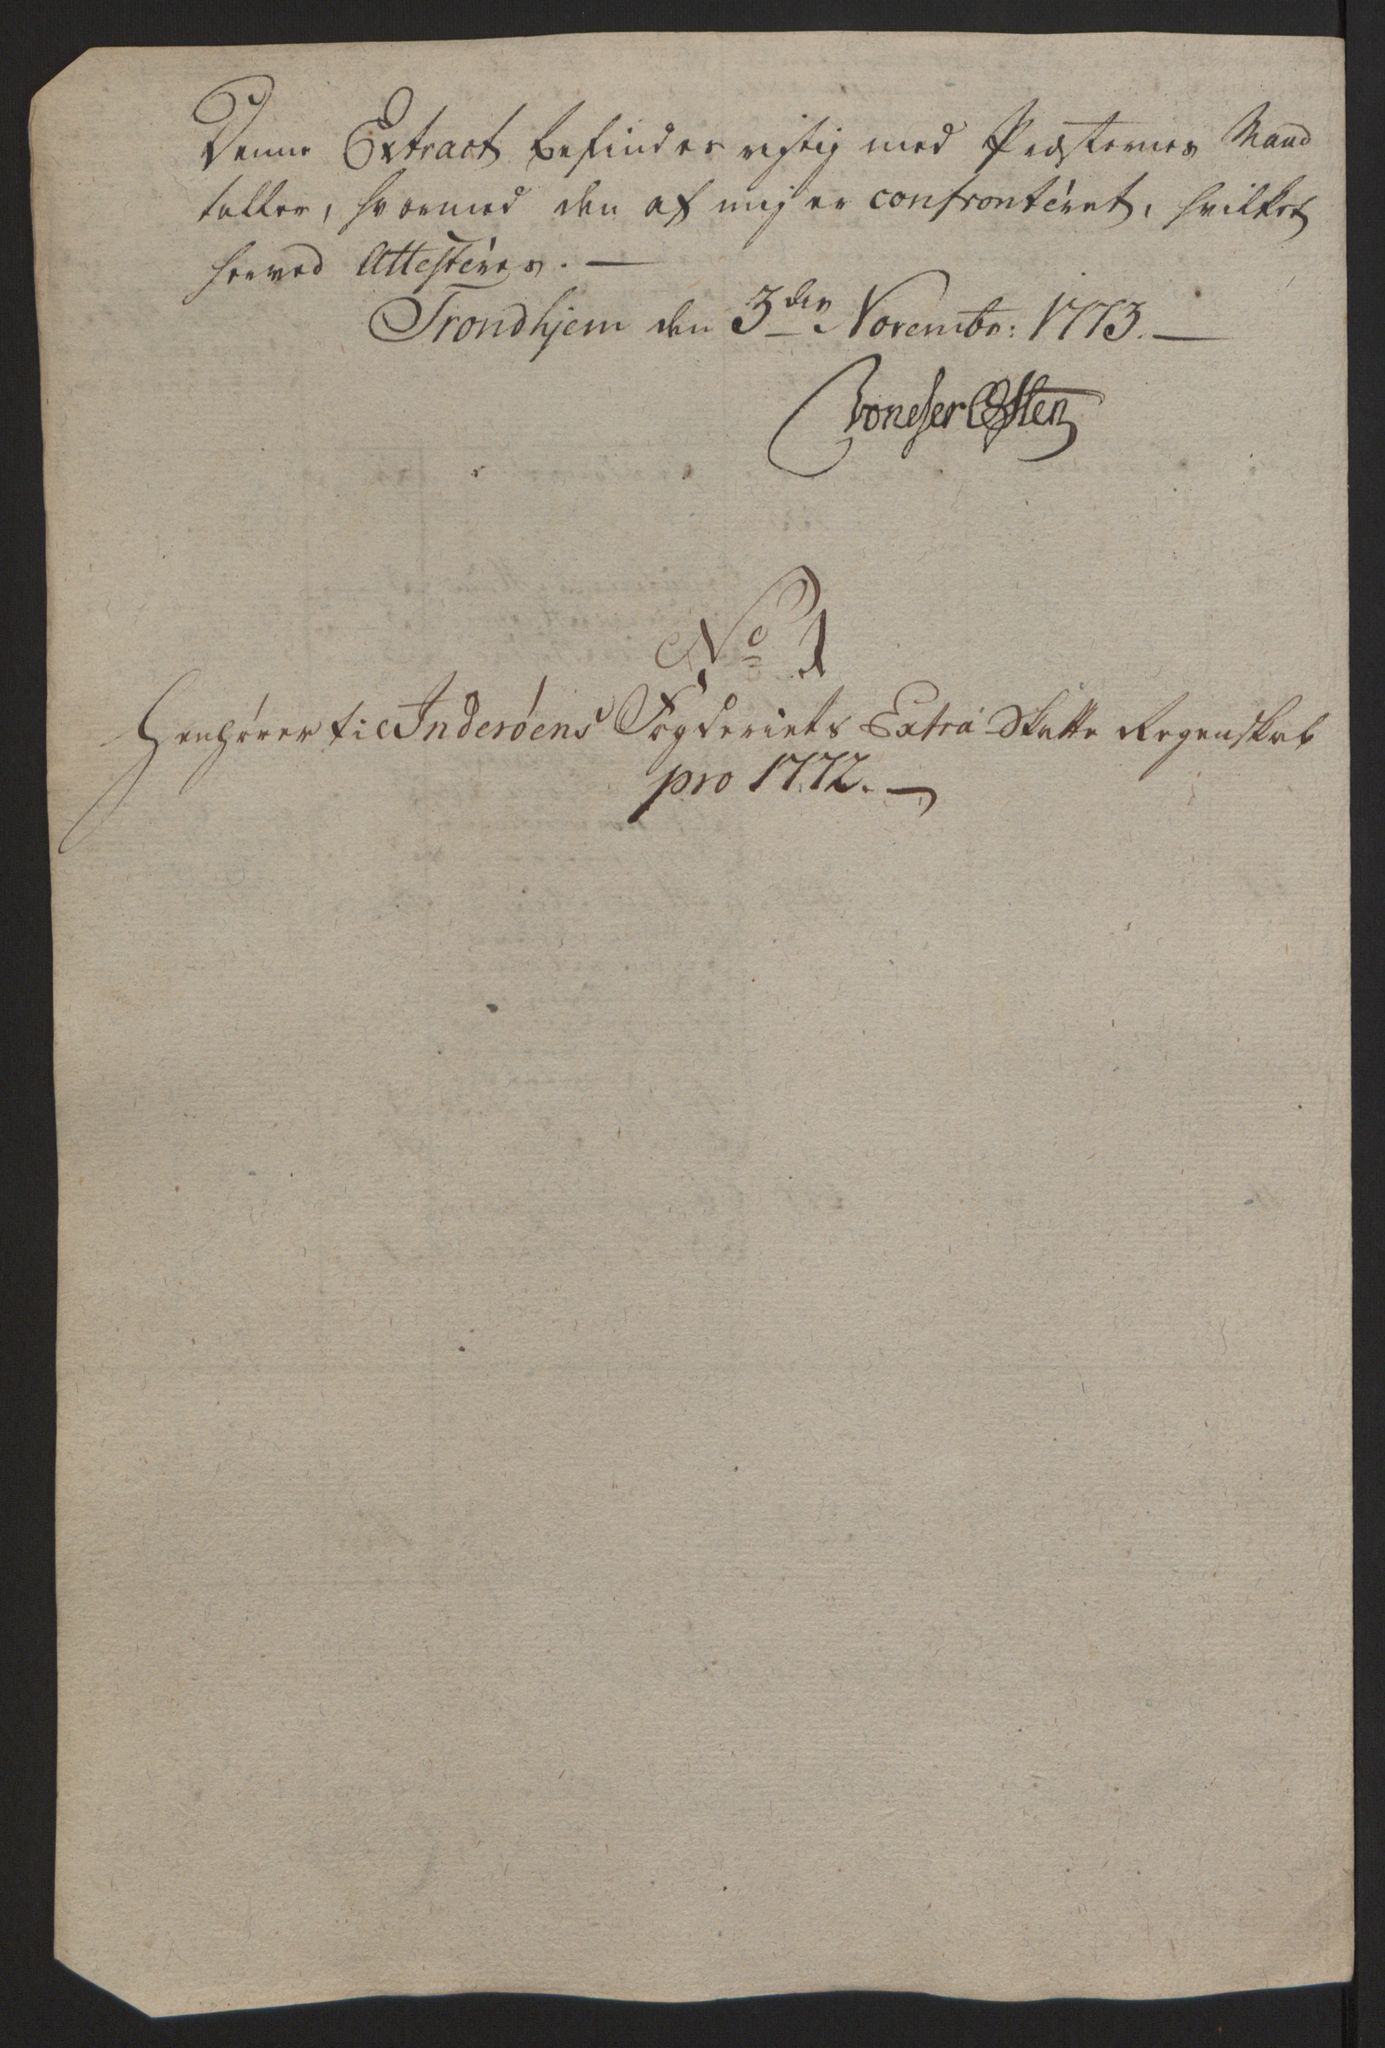 Denne Extract befindes rigtig med Præsternes Mand
taller, hvormed den af mig er confronteret, hvilket
herved Attesteres. —
Trondhjem den 3den Novembr: 1773. —
No 1
Henhører til Inderøens Fogderiets Extra Skatte Regenskab
pro 1772. —